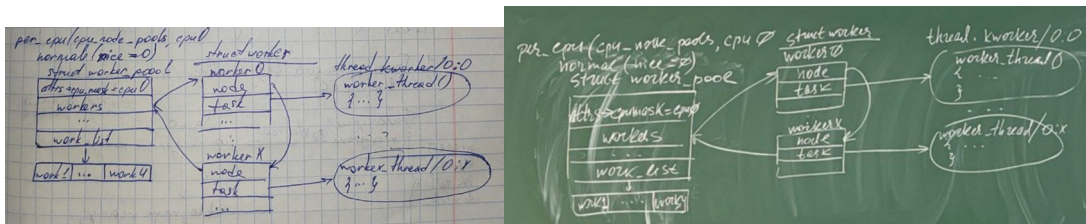 per_cpu(cpu_node_pools, cpu0
normal (nice=0)
struct worker_poool
attrs→cpu_mask=cpu0
workers
...
work_list
work1 ... work4
struct worker
worker0
node
task
...
worker X
node
task
...
thread kworker/0:0
worker_thread()
{ ... }
... ?
worker_thread/0:X
{ ... }
per_cpu(cpu_node_pools, cpu 0
normal (nice=0)
struct worker_pool
attrs→cpumask=cpu0
workers
...
work_list
work1 ... work4
struct worker
worker0
node
task
workerX
node
task
thread. kworker/0:0
worker_thread()
{ ...
}
...
worker_thread/0:X
{ ...
}